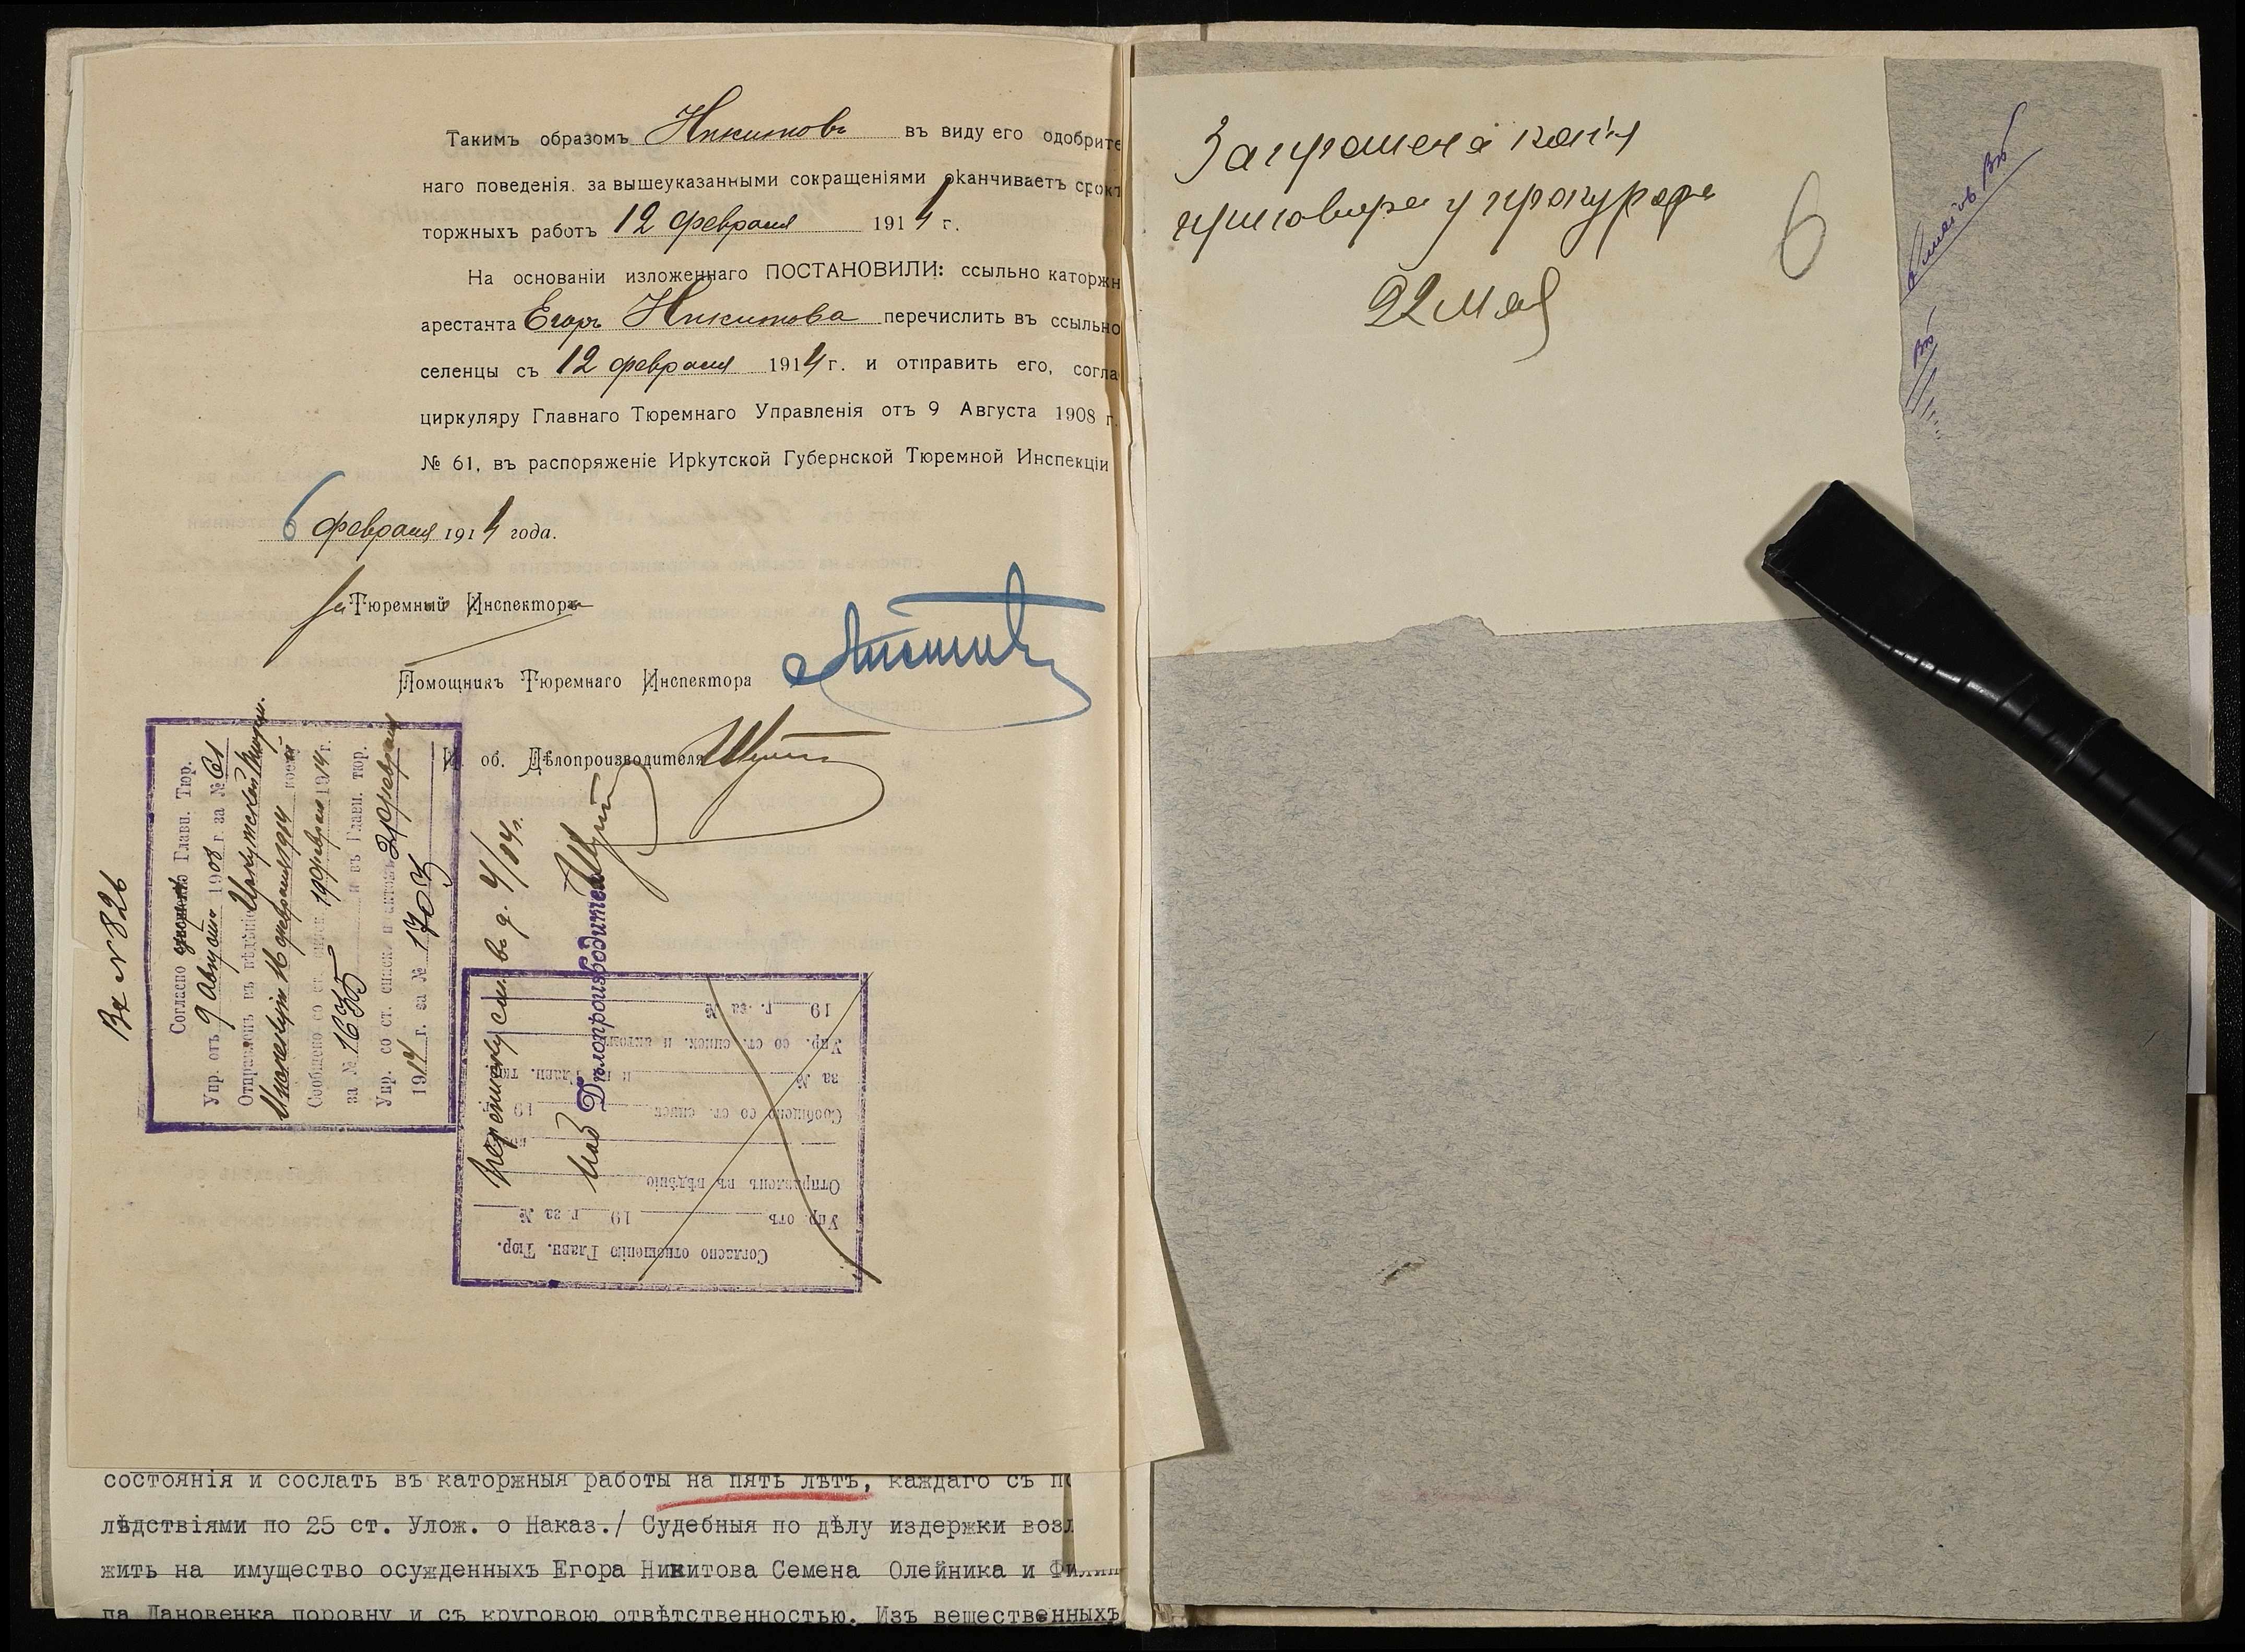 Такимъ образомъ Никитовъ въ виду его одобрите
наго поведенія. за вышеуказанными сокращеніями оканчиваетъ срок
торжныхъ работъ 12 февраля 1914 г.
На основаніи изложеннаго ПОСТАНОВИЛИ: ссыльно каторжн
арестанта Егора Никитова перечислить въ ссыльно
селенцы съ 12 февраля 1914 г. и отправить его, согла
циркуляру Главнаго Тюремнаго Управленія отъ 9 Августа 1908 г.
№ 61, въ распоряженіе Иркутской Губернской Тюремной Инспекціи
6 февраля 1914 года.
Тюремный Инспекторъ
Помощникъ Тюремнаго Инспектора
И. об. Дѣлопроизводителя
Вх №826
Согласно Главн. Тюр.
Упр. отъ 9 Августа 1908 г. за № 61
Отправленъ въ вѣдѣніе Иркутской
16 февраля 1914
Сообщено со ст. списк. 19 февраля 1914 г.
за № 1635 и въ Главн. тюр.
Упр. со ст. списк. и актомъ 21 февраля
1914 г. за № 1703
Переписку см. въ д. 4/04 г.
Дѣлопроизводитель
Согласно отношенію Главн. Тюр.
Упр. отъ 19 г. за №
Отправленъ въ вѣдѣніе
Сообщено со ст. списк. 19
за № и въ Главн. тюр.
Упр. со ст. списк. и актомъ
19 г. за №
состоянія и сослать въ каторжныя работы на пять лѣтъ, каждаго съ по
лѣдствіями по 25 ст. Улож. о Наказ./ Судебныя по дѣлу издержки возл
жить на имущество осужденныхъ Егора Никитова Семена Олейника и Филип
па Дановенка поровну и съ круговою отвѣтственностью. Изъ вещественныхъ
Запрошена копія
приговора у прокурора
22 мая
6